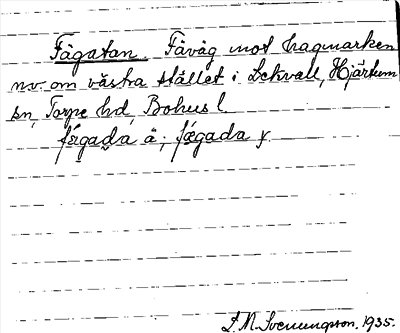 Fägatan. Fäväg mot hagmarken
nv. om västra stället i Lekvall, Hjärtum
sn, Torpe hd, Bohus l.
fägada ä; fægada y.
L.N. Svenungsson. 1935.